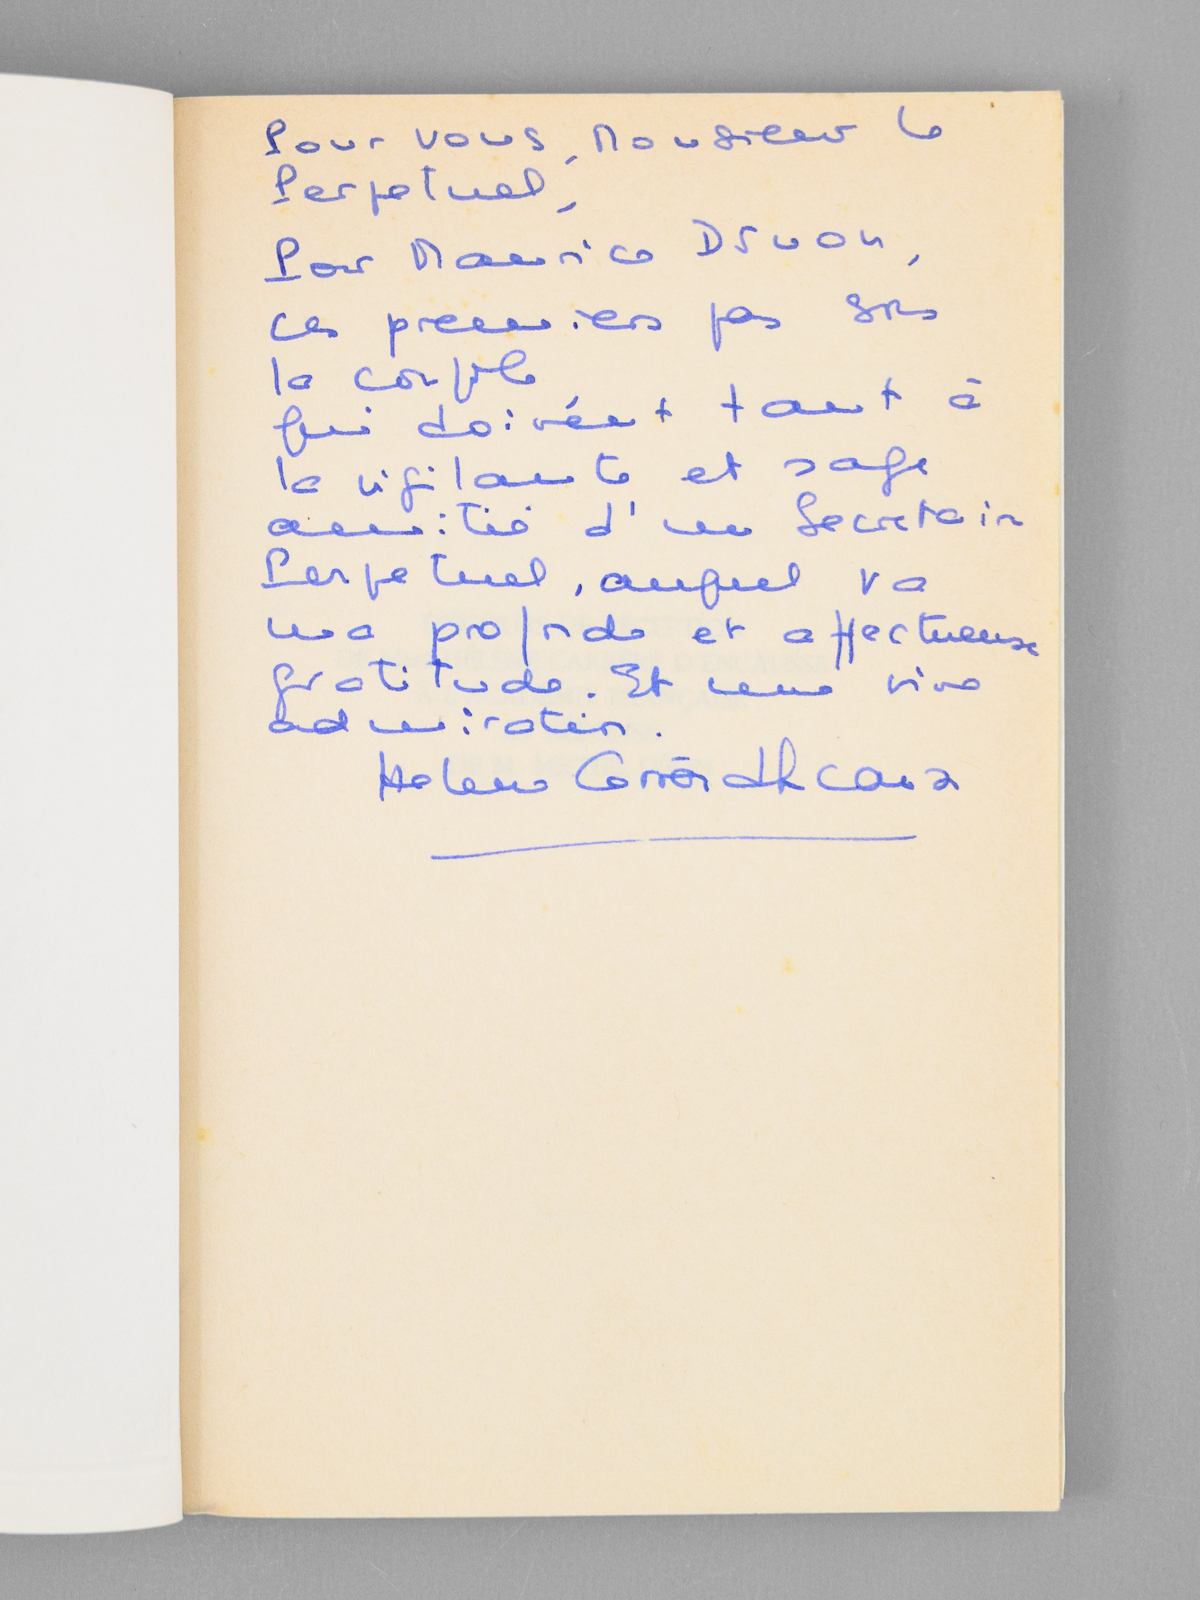 Pour vous, Monsieur le
Perpetuel,
Pour Maurice Druon,
ces premiers pas sous
la coupole
qui doivent tant à
la vigilante et sage
amitié d'un Secretaire
Perpetuel, auquel va
ma profonde et affectueuse
gratitude. Et une vive
admiration.
Helene Carrère d'Encausse